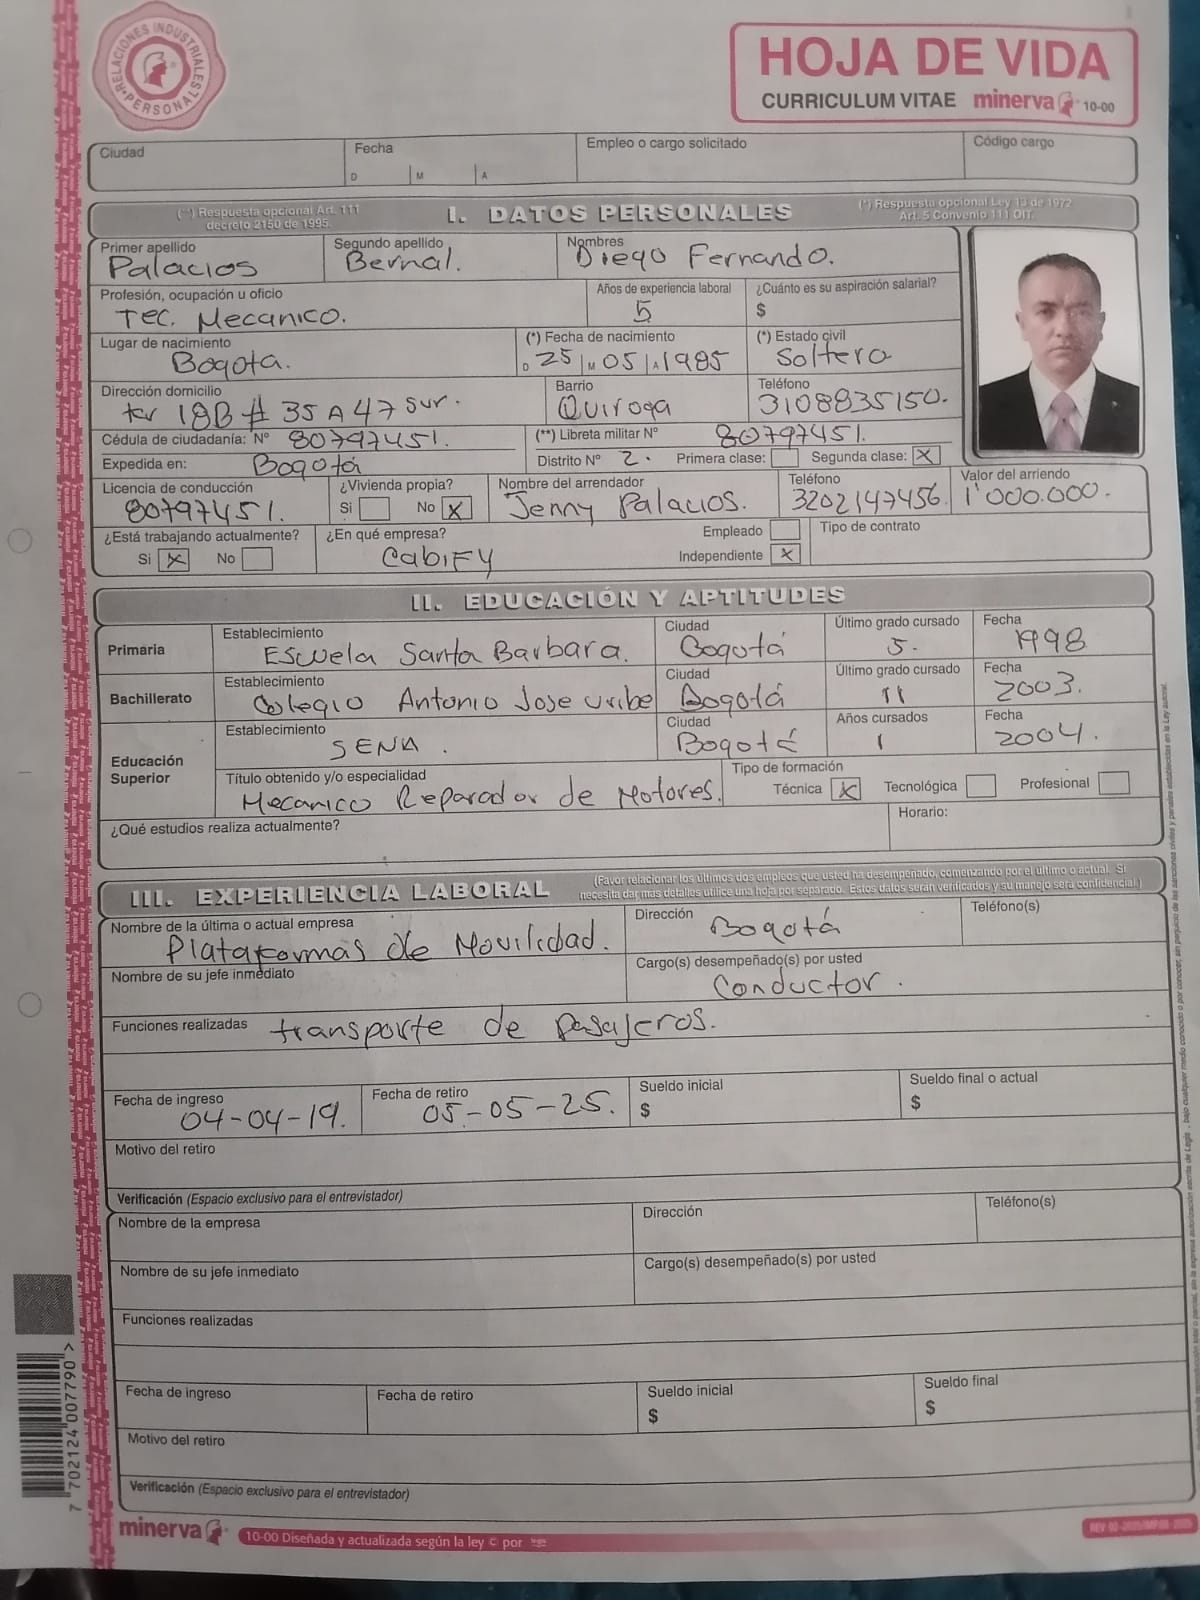 RELACIONES INDUSTRIALES
PERSONALS
HOJA DE VIDA
CURRICULUM VITAE minerva 10-00
Ciudad
Fecha
D M A
Empleo o cargo solicitado
Código cargo
(**) Respuesta opcional Art. 111
decreto 2150 de 1995
I. DATOS PERSONALES
(*) Respuesta opcional Ley 13 de 1972
Art. 5 Convenio 111 OIT.
Primer apellido Segundo apellido Nombres
Palacios Bernal. Diego Fernando.
Profesión, ocupación u oficio Años de experiencia laboral ¿Cuánto es su aspiración salarial?
Tec. Mecanico. 5 $
Lugar de nacimiento (*) Fecha de nacimiento (*) Estado civil
Bogota. D 25 M 05 A 1985 Soltero
Dirección domicilio Barrio Teléfono
18B # 35 A 47 sur. Quiroga 3108835150.
Cédula de ciudadanía: Nº 80797451. (**) Libreta militar Nº 80797451.
Expedida en: Bogotá Distrito Nº 2. Primera clase: Segunda clase: X
Licencia de conducción ¿Vivienda propia? Nombre del arrendador Teléfono Valor del arriendo
80797451. Si No X Jenny Palacios. 3202147456. 1'000.000.
¿Está trabajando actualmente? ¿En qué empresa? Empleado Tipo de contrato
Si X No Cabify Independiente X
II. EDUCACIÓN Y APTITUDES
Primaria
Establecimiento Ciudad Último grado cursado Fecha
Escuela Santa Barbara. Bogotá 5. 1998
Bachillerato
Establecimiento Ciudad Último grado cursado Fecha
Colegio Antonio Jose uribe Bogotá 11 2003.
Educación
Superior
Establecimiento Ciudad Años cursados Fecha
SENA. Bogotá 1 2004.
Título obtenido y/o especialidad Tipo de formación
Mecanico Reparador de Motores. Técnica X Tecnológica Profesional
¿Qué estudios realiza actualmente? Horario:
III. EXPERIENCIA LABORAL
(Favor relacionar los últimos dos empleos que usted ha desempeñado, comenzando por el último o actual. Si
necesita dar mas detalles utilice una hoja por separado. Estos datos serán verificados y su manejo será confidencial.)
Nombre de la última o actual empresa Dirección Teléfono(s)
Plataformas de Movilidad. Bogotá
Nombre de su jefe inmediato Cargo(s) desempeñado(s) por usted
Conductor.
Funciones realizadas transporte de pasajeros.
Fecha de ingreso Fecha de retiro Sueldo inicial Sueldo final o actual
04-04-19. 05-05-25. $ $
Motivo del retiro
Verificación (Espacio exclusivo para el entrevistador)
Nombre de la empresa Dirección Teléfono(s)
Nombre de su jefe inmediato Cargo(s) desempeñado(s) por usted
Funciones realizadas
Fecha de ingreso Fecha de retiro Sueldo inicial Sueldo final
$ $
Motivo del retiro
Verificación (Espacio exclusivo para el entrevistador)
minerva 10-00 Diseñada y actualizada según la ley © por
7 702124 007790 >